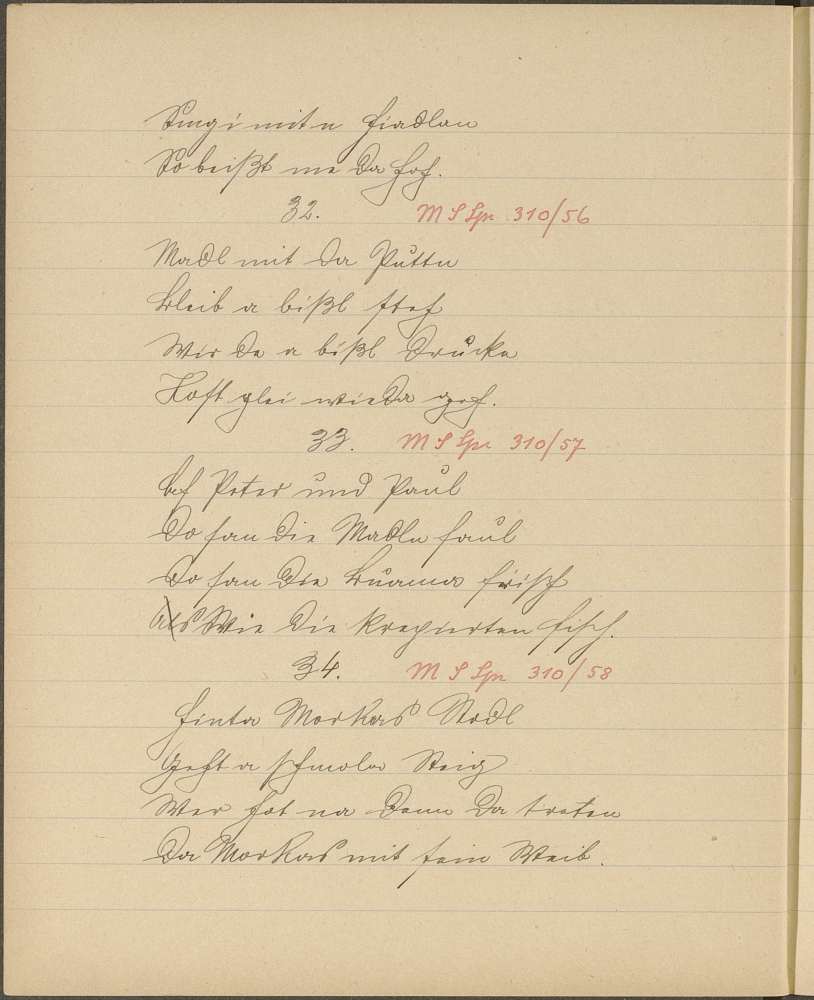 Sing i mit n Hiadlan
So beißt me da Hof.
32. M S Spr 310/56
Madl mit da Puttn
Bleib a bißl steh
Wir de a bißl drucka
Kost glei wieda geh.
33. M S Spr 310/57
Peter und Paul
Do san die Madln faul
Do san die Buama frisch
Als Wie die krepierten Fisch.
34. M S Spr 310/58
Hinta Morkas Stodl
Geht a schmola Steig
Wer hot na denn da treten
Da Morkas mit sein Weib.